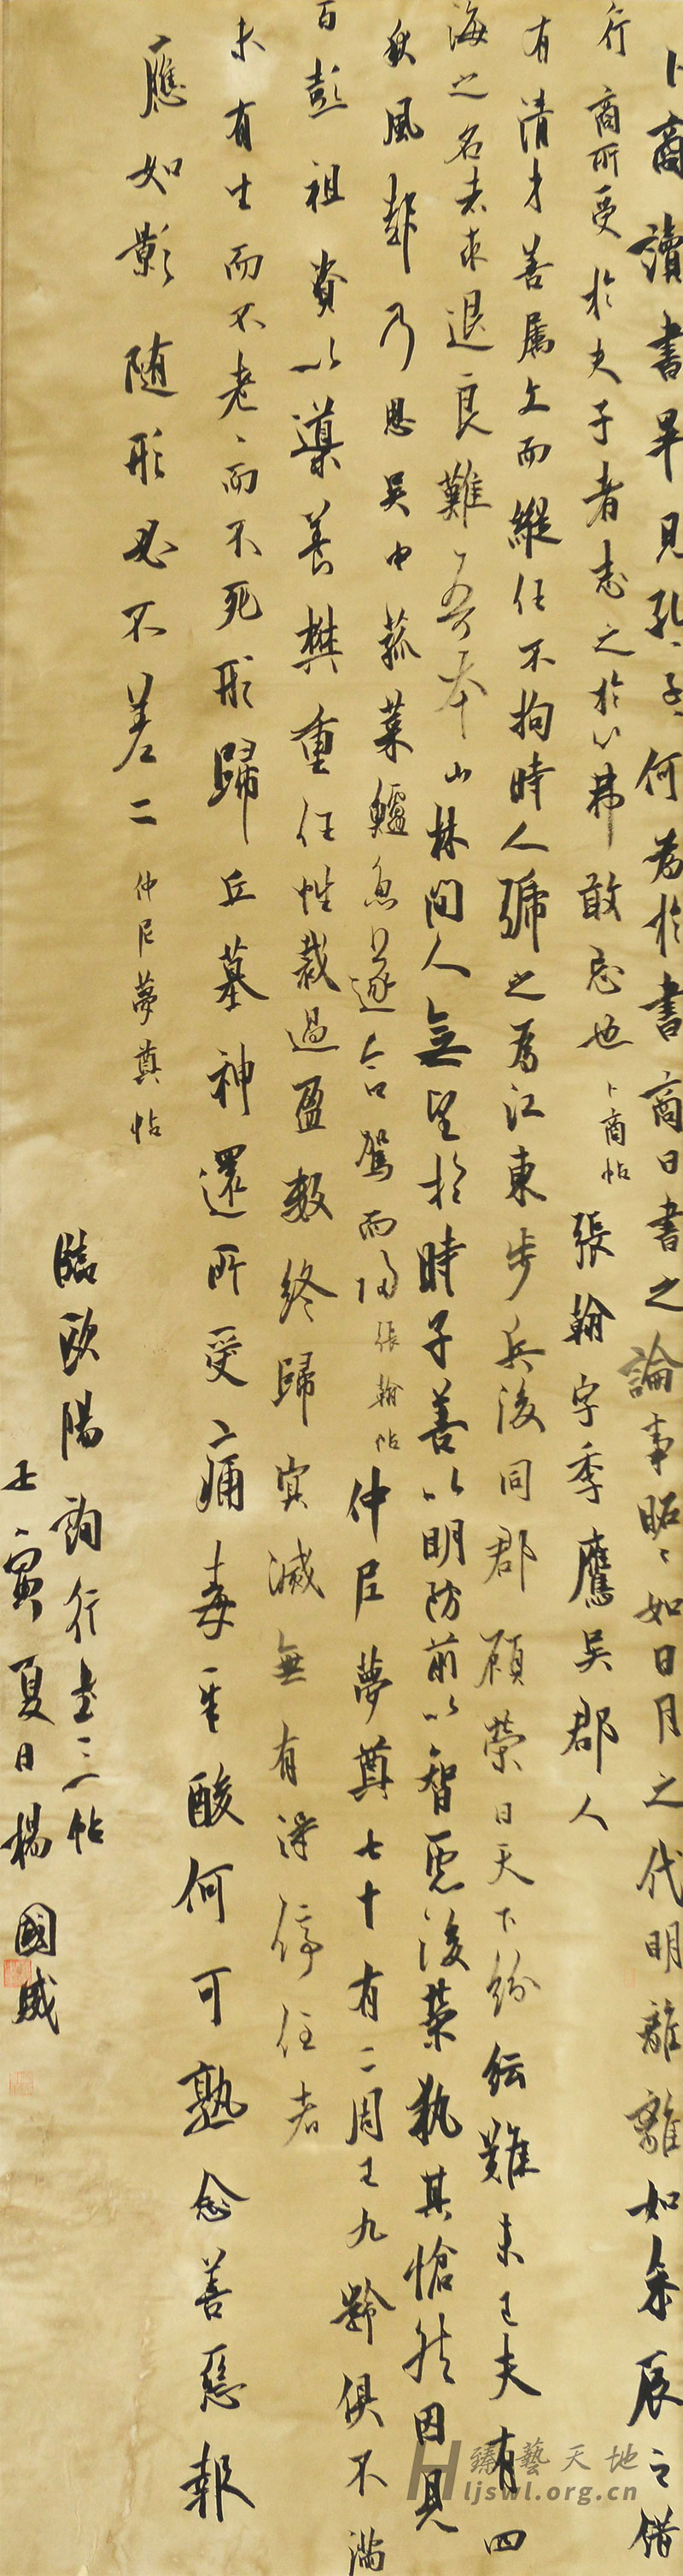 卜商讀書畢見孔〻子〻何為於書商曰書之論事昭〻如日月之代明離離如參辰之錯
行商所受於夫子者志之於心弗敢忘也卜商帖張翰字季鷹吳郡人
有清才善属文而縱任不拘時人號之為江東步兵後同郡顧榮曰天下紛紜難未已夫有四
海之名者求退良難吾本山林間人無望於時子善以明防前以智慮後榮執其愴然因見
秋風起乃思吳中菰菜鱸魚遂命駕而歸張翰帖仲尼夢奠七十有二周王九齡俱不滿
百彭祖資以導養樊重任性裁過盈數終歸冥滅無有得停住者
未有生而不老〻而不死形歸丘墓神還所受痛毒辛酸何可熟念善惡報
應如影随形必不差二仲尼夢奠帖
臨歐陽詢行書三帖
壬寅夏日楊國威
臻藝天地
ljswl.org.cn